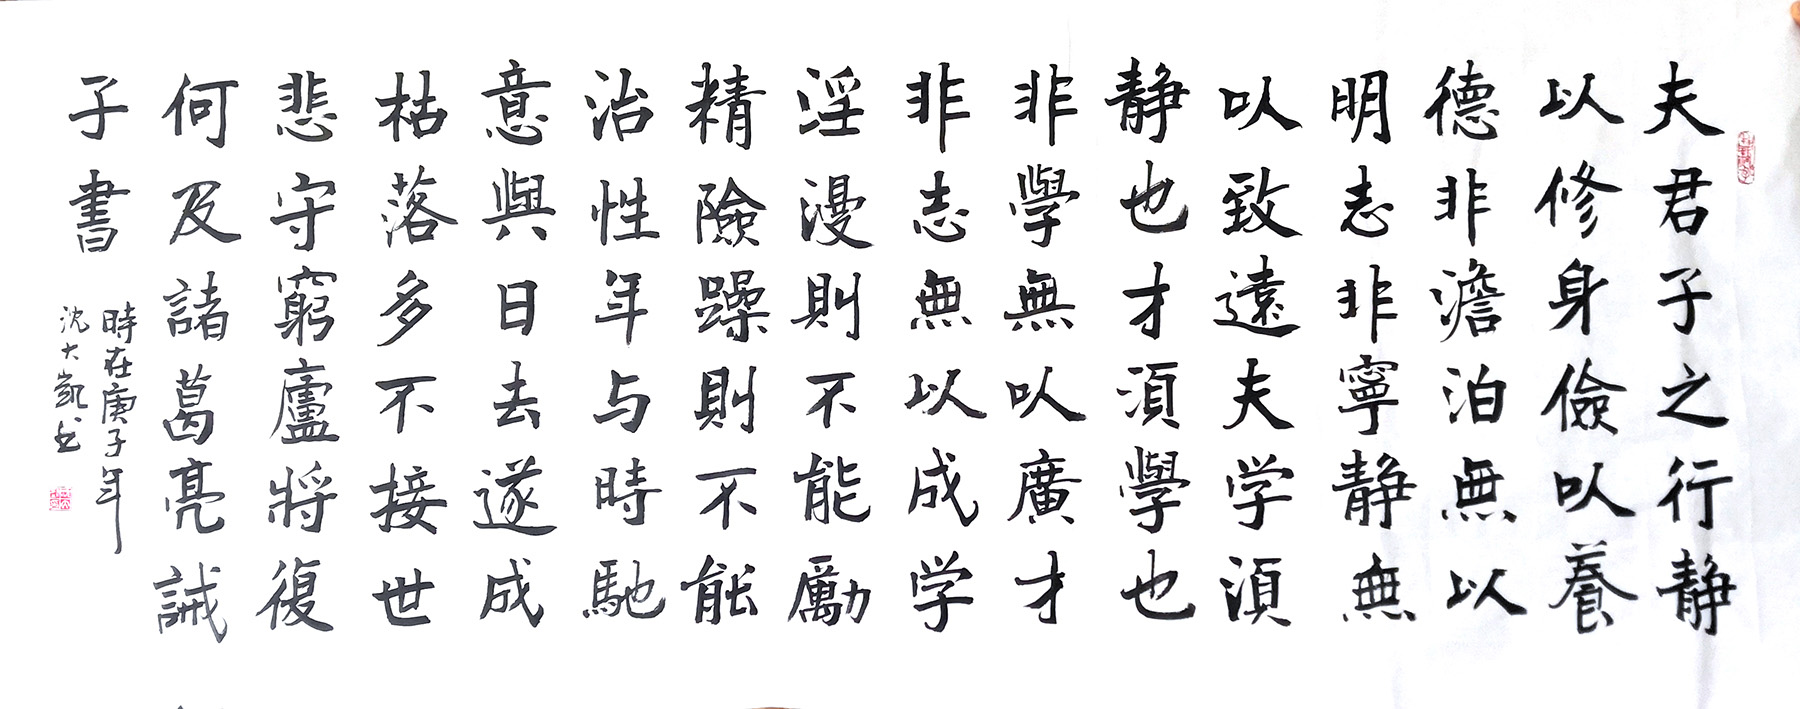 夫君子之行静
以修身儉以養
德非澹泊無以
明志非寧静無
以致遠夫学須
静也才須學也
非學無以廣才
非志無以成学
淫漫則不能勵
精險躁則不能
治性年与時馳
意與日去遂成
枯落多不接世
悲守窮廬將復
何及諸葛亮誡
子書
時在庚子年
沈大凱书